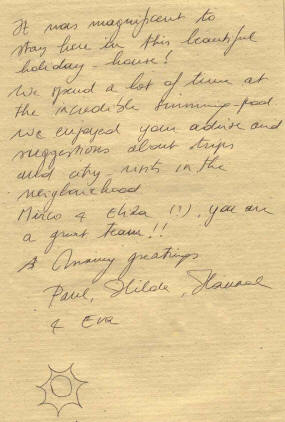 It was magnificent to
stay here in this beautiful
holiday-house!
We spend a lot of time at
the incredible swimming-pool
We enjoyed your advise and
suggestions about trips
and city-visits in the
neighbourhood
Mirco & Eliza (!), you are
a great team!!
Many greatings
Paul, Hilde,
& Eva